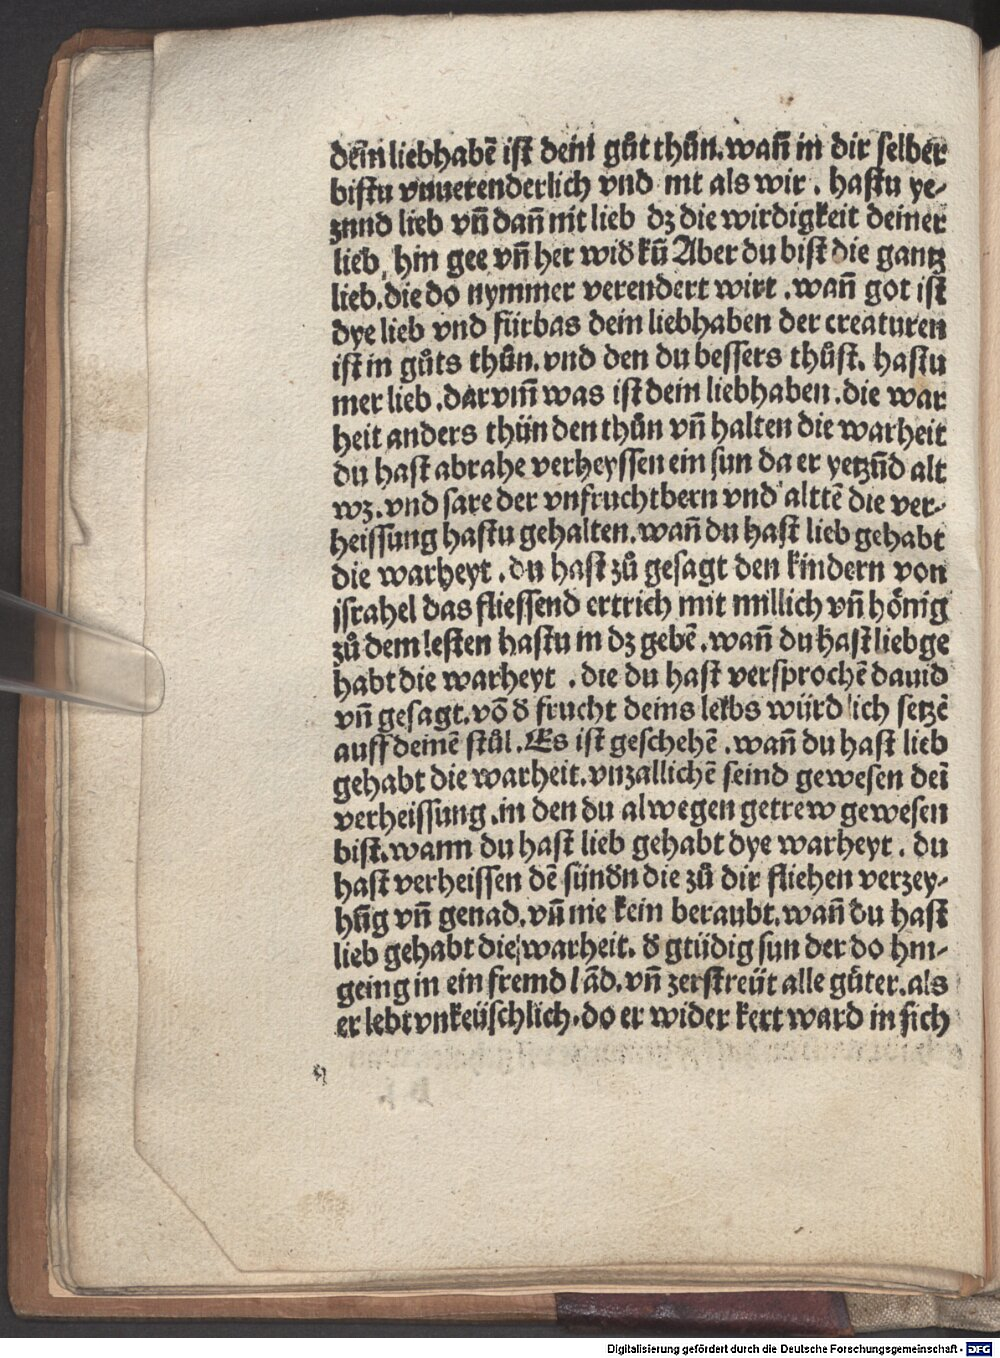 dein liebhabē ist dein gůt thůn. wañ in dir selber
bistu vnuerenderlich vnd nit als wir. hastu ye-
zund lieb vñ dañ nit lieb dz die wirdigkeit deiner
lieb, hin gee vñ her wid kū Aber du bist die gantz
lieb. die do nymmer verendert wirt. wañ got ist
dye lieb vnd fürbas dein liebhaben der creaturen
ist in gůts thůn. vnd den du bessers thůst. hastu
mer lieb. darvm̄ was ist dein liebhaben. die war
heit anders thün den thůn vñ halten die warheit
du hast abrahe verheyssen ein sun da er yetzūd alt
wz. vnd sare der vnfruchtbern vnd alttē die ver-
heissung hastu gehalten. wañ du hast lieb gehabt
die warheyt. du hast zů gesagt den kindern von
jsrahel das fliessend ertrich mit millich vñ hönig
zů dem lesten hastu in dz gebē. wañ du hast liebge
habt die warheyt. die du hast versprochē dauid
vñ gesagt. vō d frucht deins leibs würd ich setzē
auff deinē stůl. Es ist geschehē. wañ du hast lieb
gehabt die warheit. vnzallichē seind gewesen dei
verheissung. in den du alwegen getrew gewesen
bist. wann du hast lieb gehabt dye warheyt. du
hast verheissen dē sündn die zů dir fliehen verzey-
hūg vñ genad. vñ nie kein beraubt. wañ du hast
lieb gehabt die warheit. d gtüdig sun der do hin-
geing in ein fremd lād. vñ zerstreüt alle gůter. als
er lebt vnkeüschlich. do er wider kert ward in sich
Digitalisierung gefördert durch die Deutsche Forschungsgemeinschaft - DFG